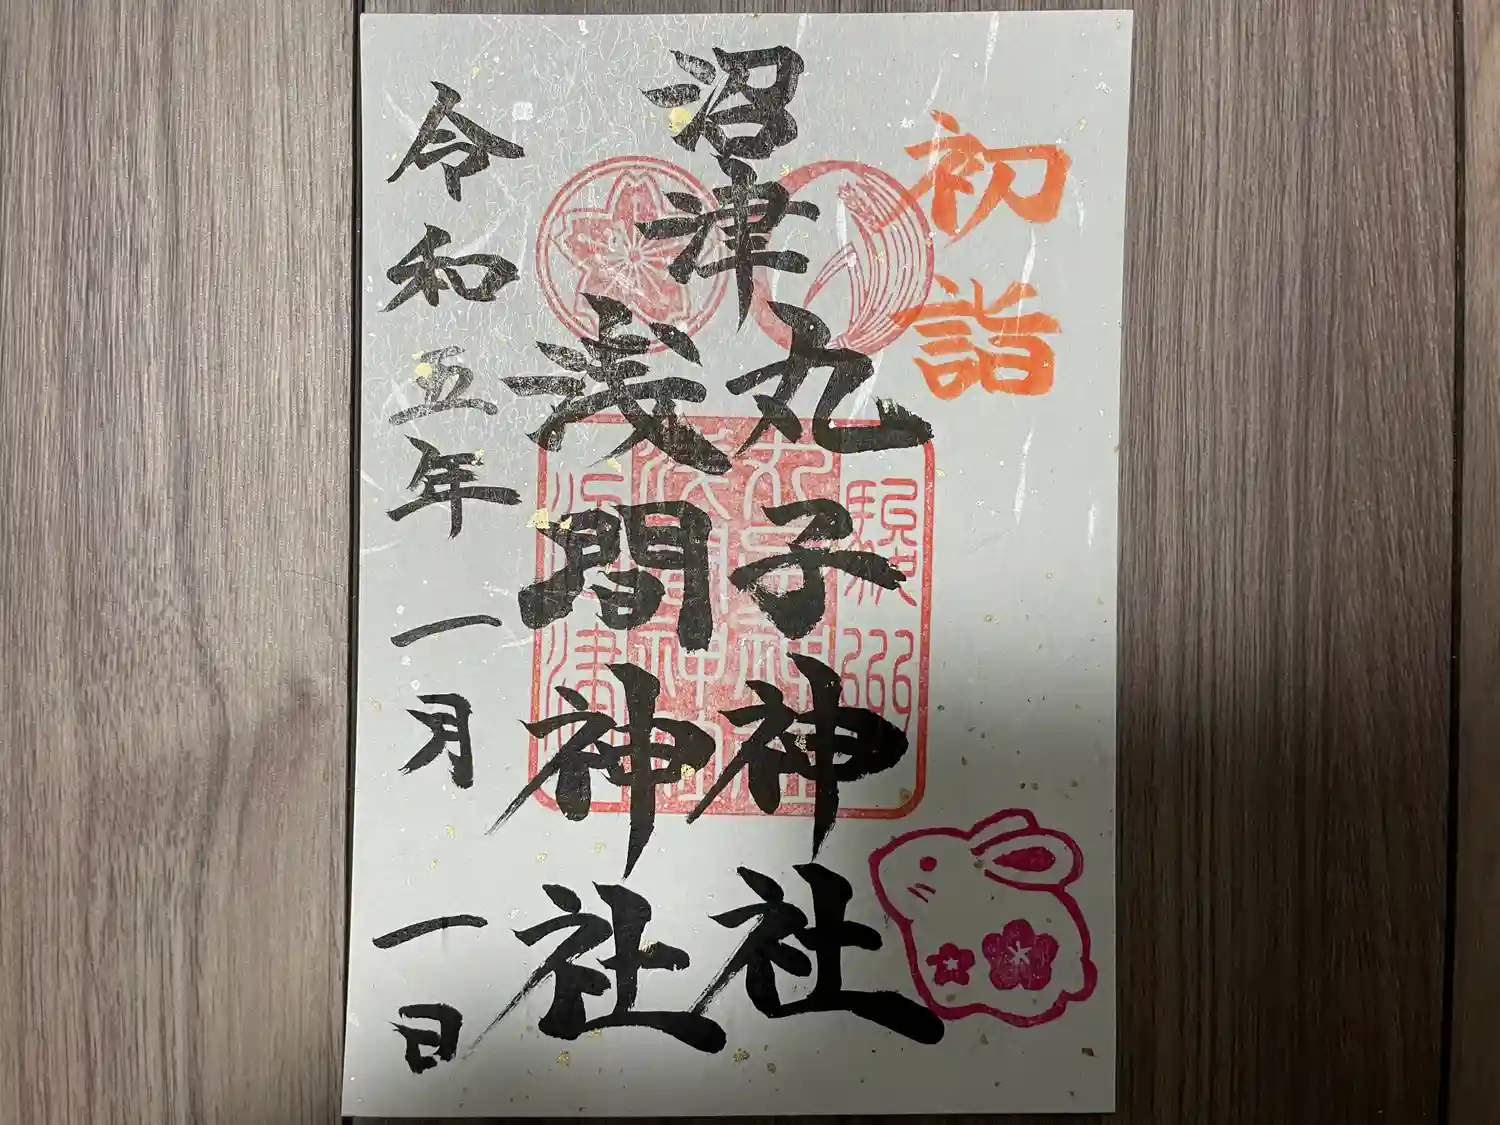 初詣
沼津
丸子神社
浅間神社
令和五年一月一日
駿州